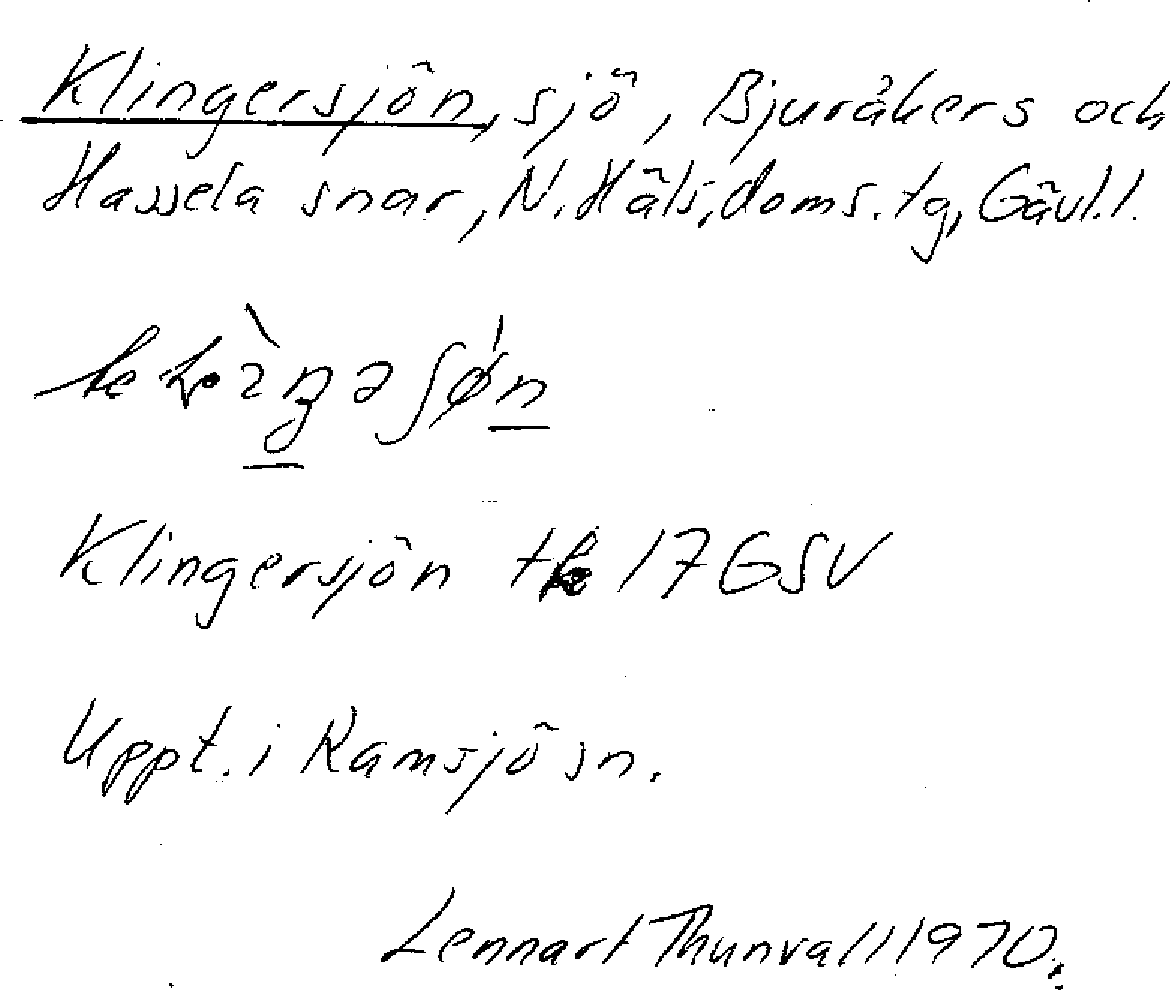 Klingersjön, sjö, Bjuråkers och
Hassela snar, N. Häls. doms. tg, Gävl.l.
Klingersjön tk 17 GSV
Uppt. i Ramsjö sn.
Lennart Thunvall 1970.